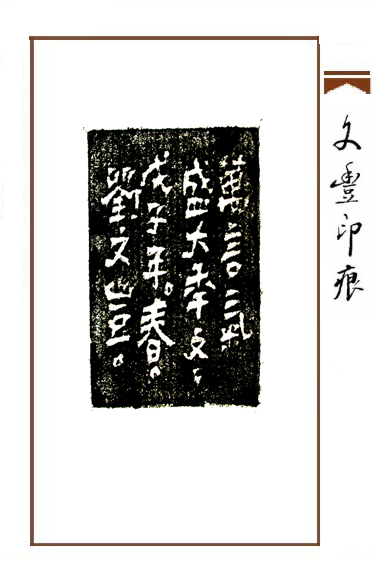 文豐印痕
萬言
盛大
戊子年。春。
劉文豐。